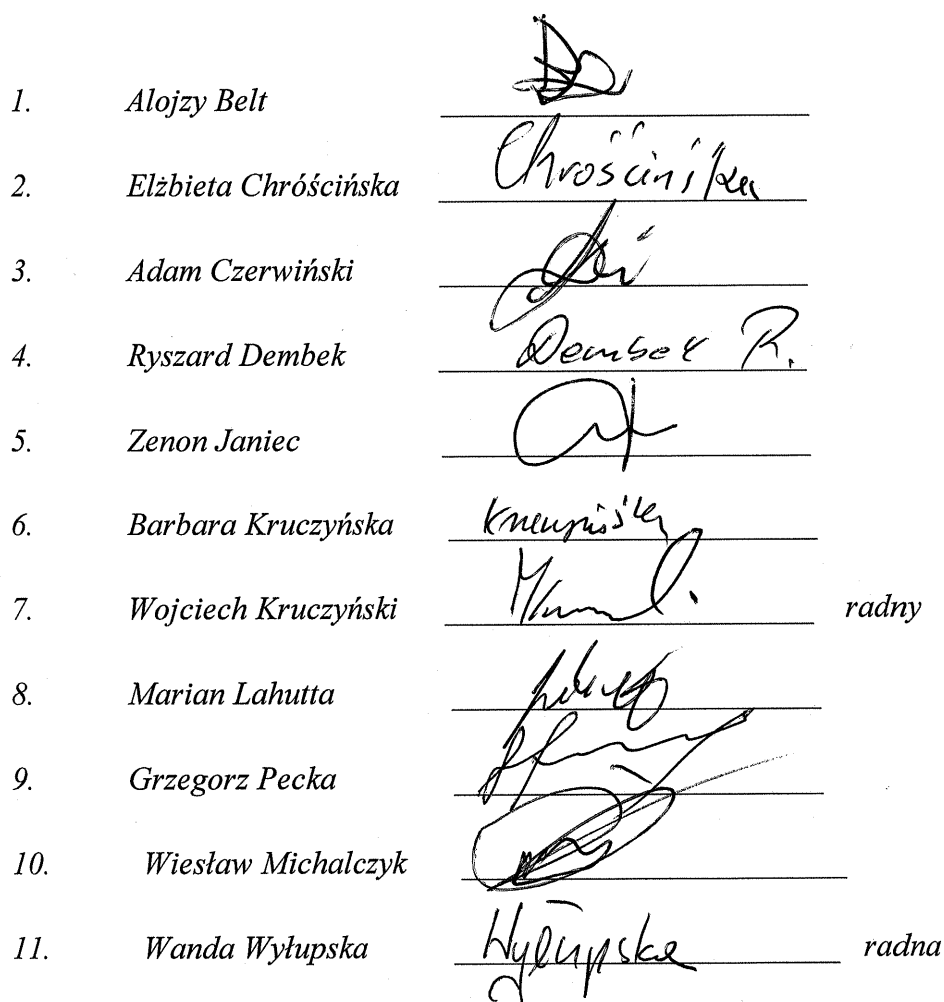 1. Alojzy Belt
2. Elżbieta Chróścińska Chrościńska
3. Adam Czerwiński
4. Ryszard Dembek Dembek R.
5. Zenon Janiec
6. Barbara Kruczyńska
7. Wojciech Kruczyński radny
8. Marian Lahutta
9. Grzegorz Pecka
10. Wiesław Michalczyk
11. Wanda Wyłupska Wyłupska radna